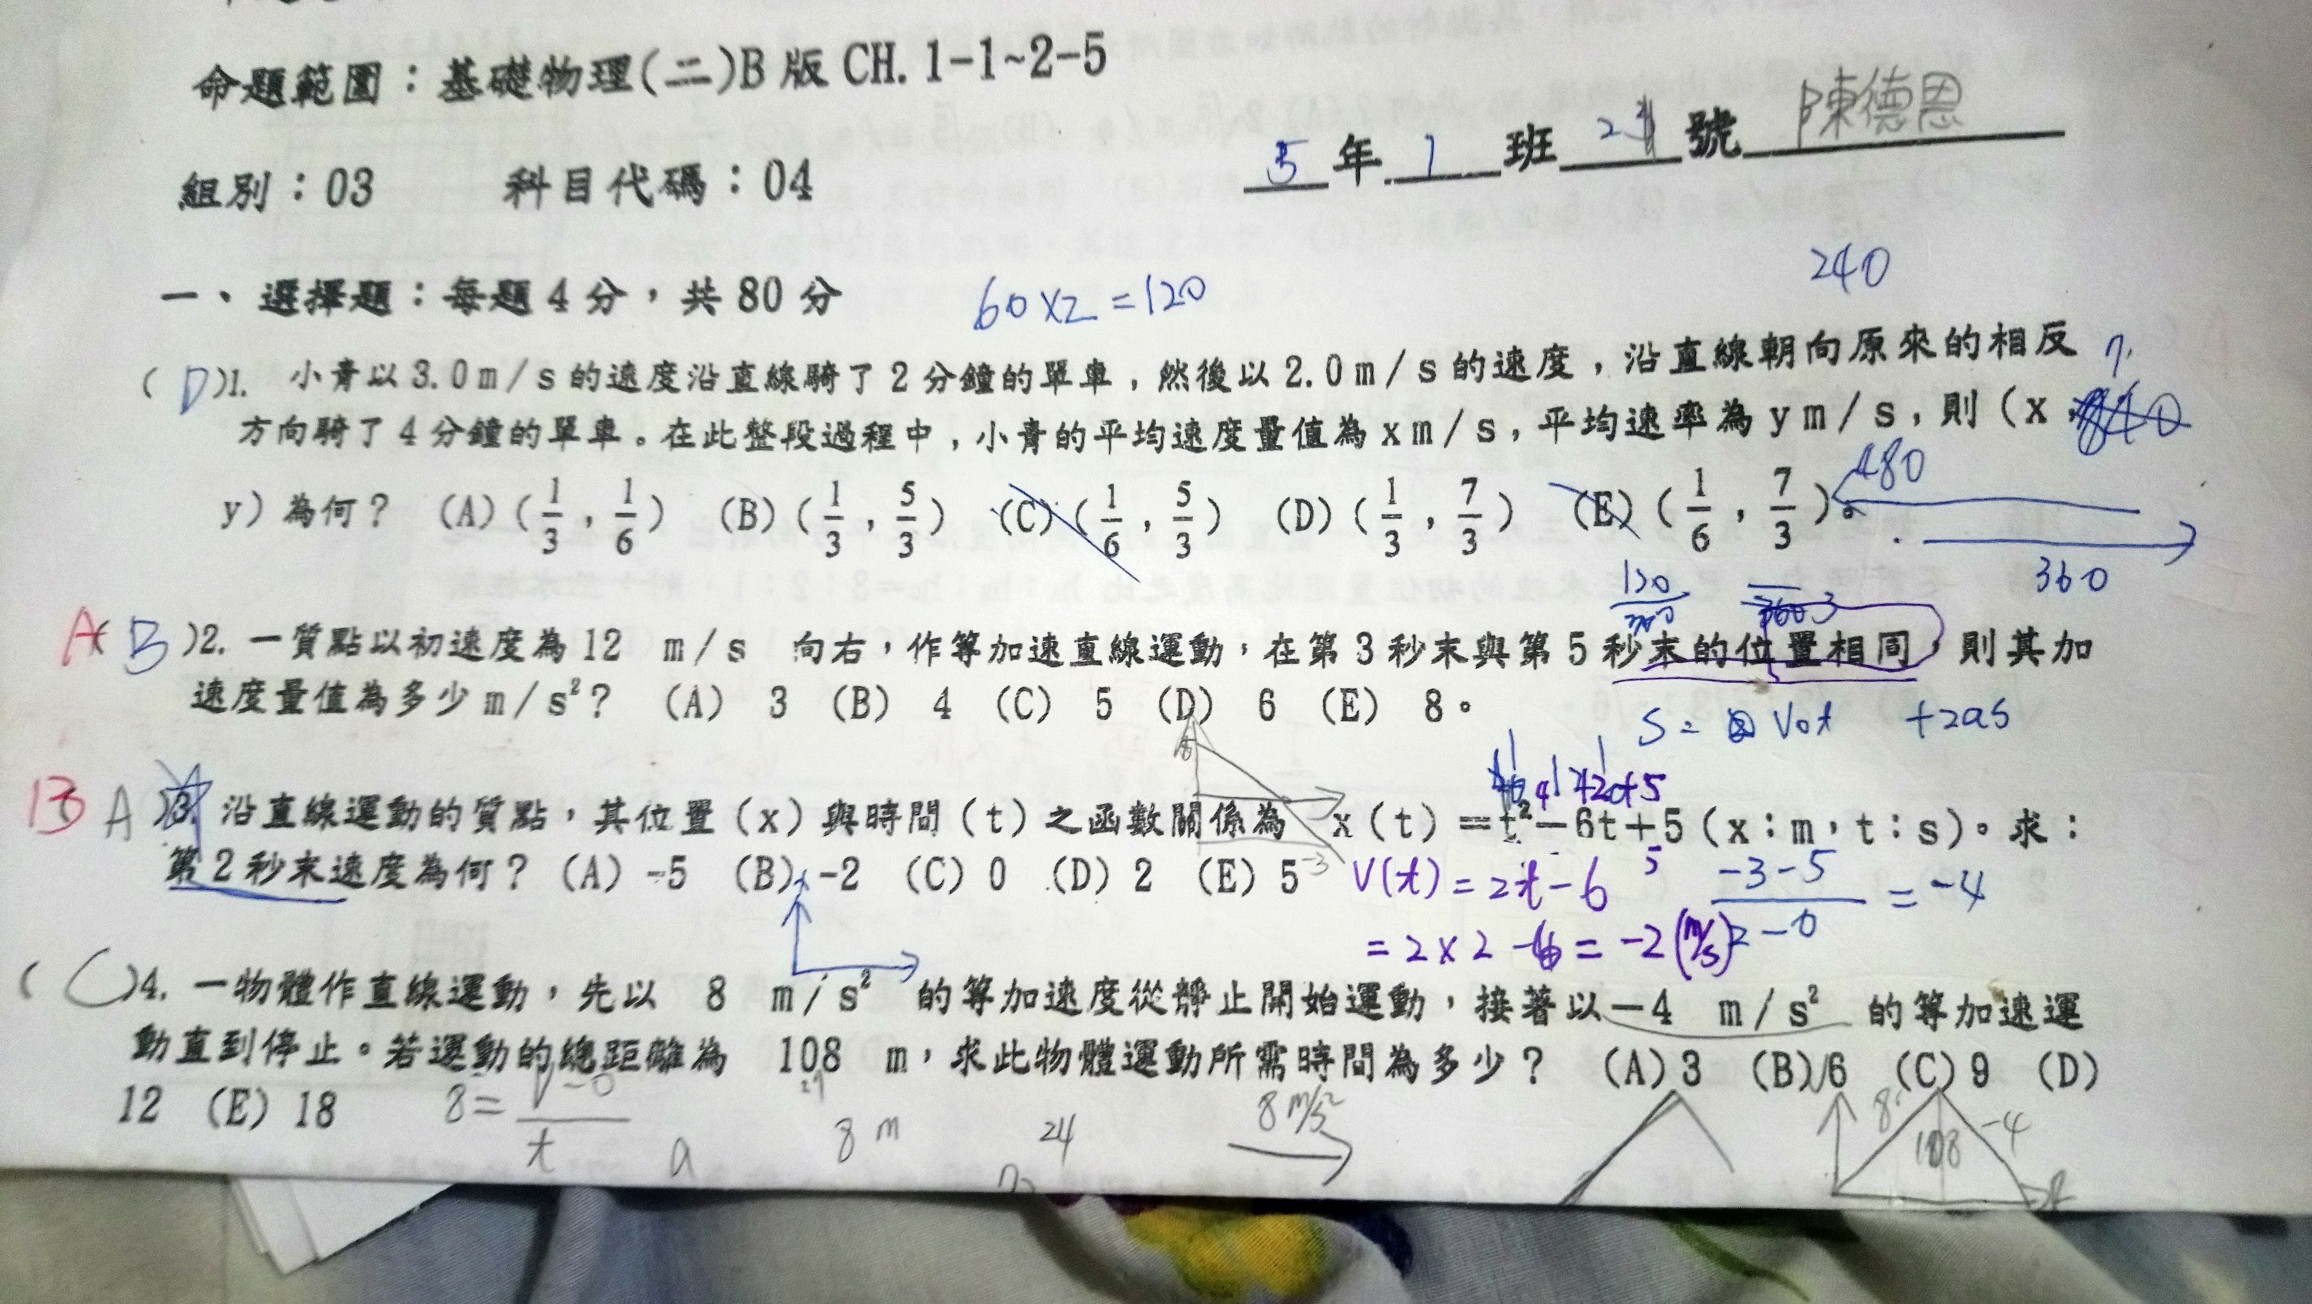 命題範圍：基礎物理(二)B版 CH.1-1~2-5
組別：03 科目代碼：04
5 年 1 班 號 陳德恩
一、選擇題：每題4分，共80分
60×2=120
240
( D )1. 小青以3.0m/s的速度沿直線騎了2分鐘的單車，然後以2.0m/s的速度，沿直線朝向原來的相反
方向騎了4分鐘的單車。在此整段過程中，小青的平均速度量值為xm/s，平均速率為ym/s，則（x，
y）為何？ (A)(1/3，1/6) (B)(1/3，5/3) (C)(1/6，5/3) (D)(1/3，7/3) (E)(1/6，7/3)。
480
360
120
A ( B )2. 一質點以初速度為12 m/s 向右，作等加速直線運動，在第3秒末與第5秒末的位置相同，則其加
速度量值為多少m/s²？ (A) 3 (B) 4 (C) 5 (D) 6 (E) 8。
S= V₀t +2as
B A )3. 沿直線運動的質點，其位置(x)與時間(t)之函數關係為 x(t)=t²-6t+5(x：m，t：s)。求：
第2秒末速度為何？(A)-5 (B) -2 (C) 0 (D) 2 (E) 5
V(t)=2t-6
=2×2-6=-2(m/s)
-3-5/2-0=-4
( C )4. 一物體作直線運動，先以 8 m/s² 的等加速度從靜止開始運動，接著以-4 m/s² 的等加速運
動直到停止。若運動的總距離為 108 m，求此物體運動所需時間為多少？ (A)3 (B)6 (C)9 (D)
12 (E)18
8=V-0/t
a
8 m
24
8 m/s²
8
108
-4
t